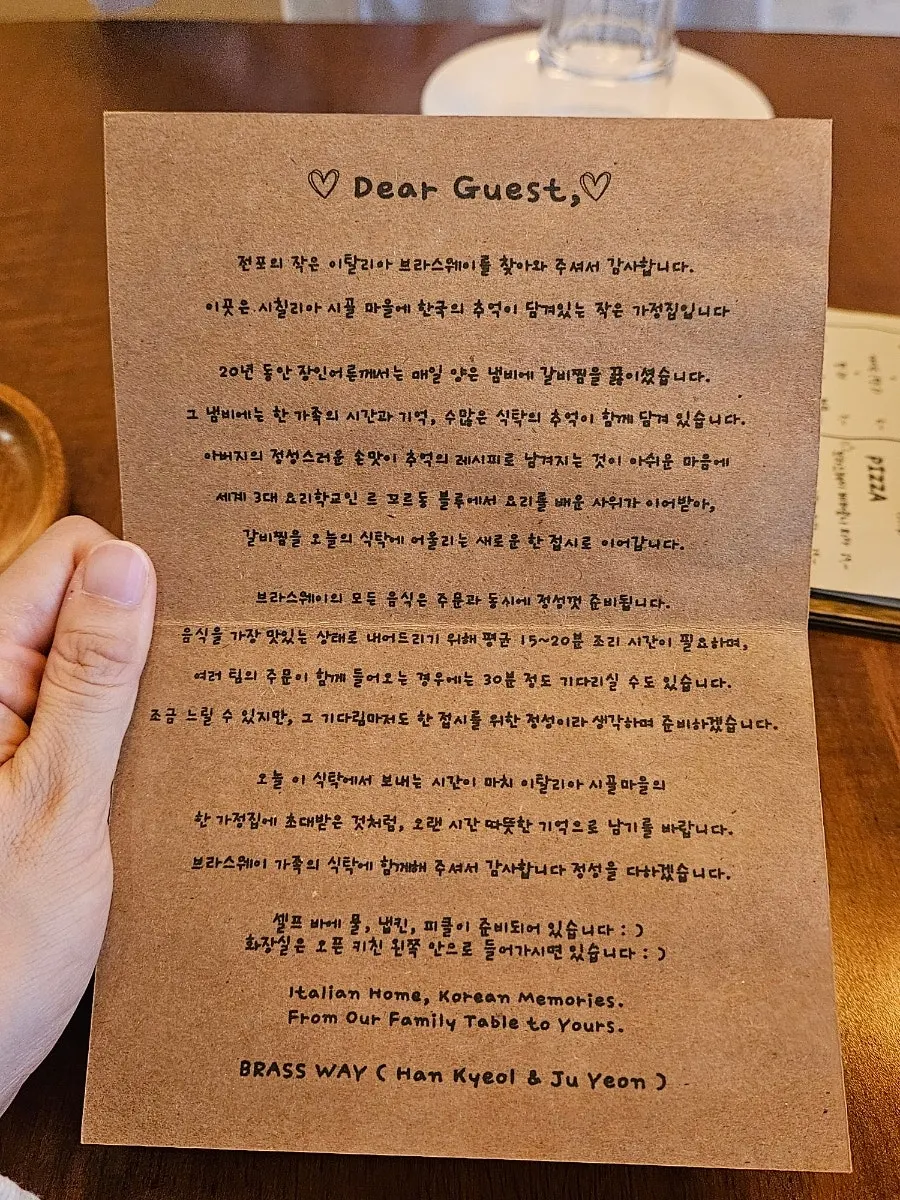 ♡ Dear Guest,♡
전포의 작은 이탈리아 브라스웨이를 찾아와 주셔서 감사합니다.
이곳은 시칠리아 시골 마을에 한국의 추억이 담겨있는 작은 가정집입니다
20년 동안 장인어른께서는 매일 양은 냄비에 갈비찜을 끓이셨습니다.
그 냄비에는 한 가족의 시간과 기억, 수많은 식탁의 추억이 함께 담겨 있습니다.
아버지의 정성스러운 손맛이 추억의 레시피로 남겨지는 것이 아쉬운 마음에
세계 3대 요리학교인 르 꼬르동 블루에서 요리를 배운 사위가 이어받아,
갈비찜을 오늘의 식탁에 어울리는 새로운 한 접시로 이어갑니다.
브라스웨이의 모든 음식은 주문과 동시에 정성껏 준비됩니다.
음식을 가장 맛있는 상태로 내어드리기 위해 평균 15~20분 조리 시간이 필요하며,
여러 팀의 주문이 함께 들어오는 경우에는 30분 정도 기다리실 수도 있습니다.
조금 느릴 수 있지만, 그 기다림마저도 한 접시를 위한 정성이라 생각하며 준비하겠습니다.
오늘 이 식탁에서 보내는 시간이 마치 이탈리아 시골마을의
한 가정집에 초대받은 것처럼, 오랜 시간 따뜻한 기억으로 남기를 바랍니다.
브라스웨이 가족의 식탁에 함께해 주셔서 감사합니다 정성을 다하겠습니다.
셀프 바에 물, 냅킨, 피클이 준비되어 있습니다 : )
화장실은 오픈 키친 왼쪽 안으로 들어가시면 있습니다 : )
Italian Home, Korean Memories.
From Our Family Table to Yours.
BRASS WAY ( Han Kyeol & Ju Yeon )
PIZZA